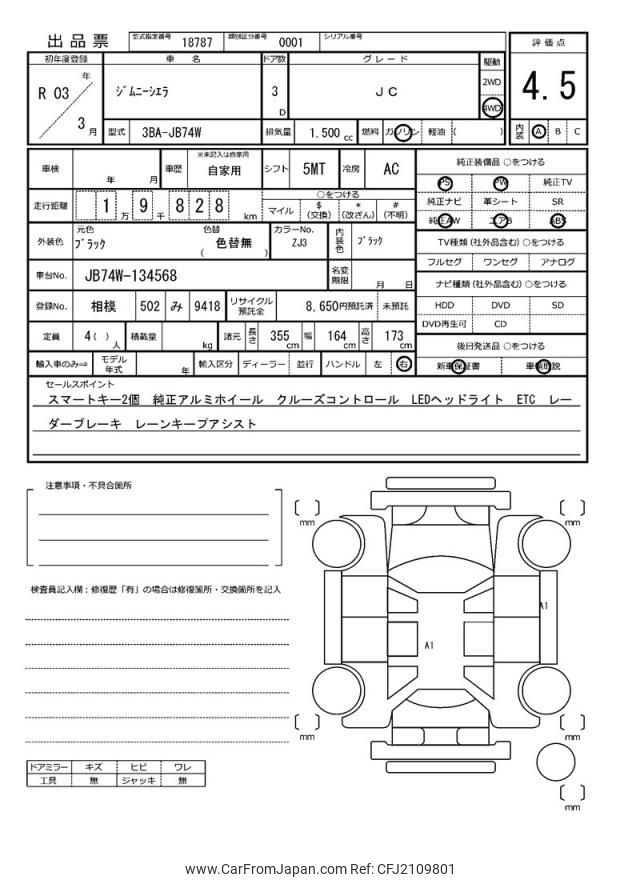 出品票 型式指定番号 18787 類別区分番号 0001 シリアル番号
初年度登録 車名 ドア数 グレード 駆動 評価点
R 03 年 3 月 ジムニーシエラ 3 D JC 2WD 4WD 4.5
型式 3BA-JB74W 排気量 1.500 cc 燃料 ガソリン 軽油 ( ) 内装 A B C
車検 年 月 車歴 ※未記入は自家用 自家用 シフト 5MT 冷房 AC
走行距離 1 万 9 千 8 2 8 km ○をつける
マイル $ (交換) * (改ざん) # (不明)
外装色 元色 ブラック 色替 色替無 ( ) カラーNo. ZJ3 内装色 ブラック
車台No. JB74W-134568 名変期限 月 日
登録No. 相模 502 み 9418 リサイクル預託金 8,650円預託済 未預託
定員 4( ) 人 積載量 kg 諸元 長さ 355 cm 幅 164 cm 高さ 173 cm
輸入車のみ⇨ モデル年式 年 輸入区分 ディーラー 並行 ハンドル 左 右
純正装備品 ○をつける
PS PW 純正TV
純正ナビ 革シート SR
純正AW エアB ABS
TV種類 (社外品含む) ○をつける
フルセグ ワンセグ アナログ
ナビ種類 (社外品含む) ○をつける
HDD DVD SD
DVD再生可 CD
後日発送品 ○をつける
新車保証書 車輌取説
セールスポイント
スマートキー2個 純正アルミホイール クルーズコントロール LEDヘッドライト ETC レー
ダーブレーキ レーンキープアシスト
注意事項・不具合箇所
検査員記入欄：修復歴「有」の場合は修復箇所・交換箇所を記入
ドアミラー キズ ヒビ ワレ
工具 無 ジャッキ 無
[ ] mm
[ ] mm
A1
A1
[ ] mm
[ ] mm
[ ] mm
www.CarFromJapan.com Ref: CFJ2109801